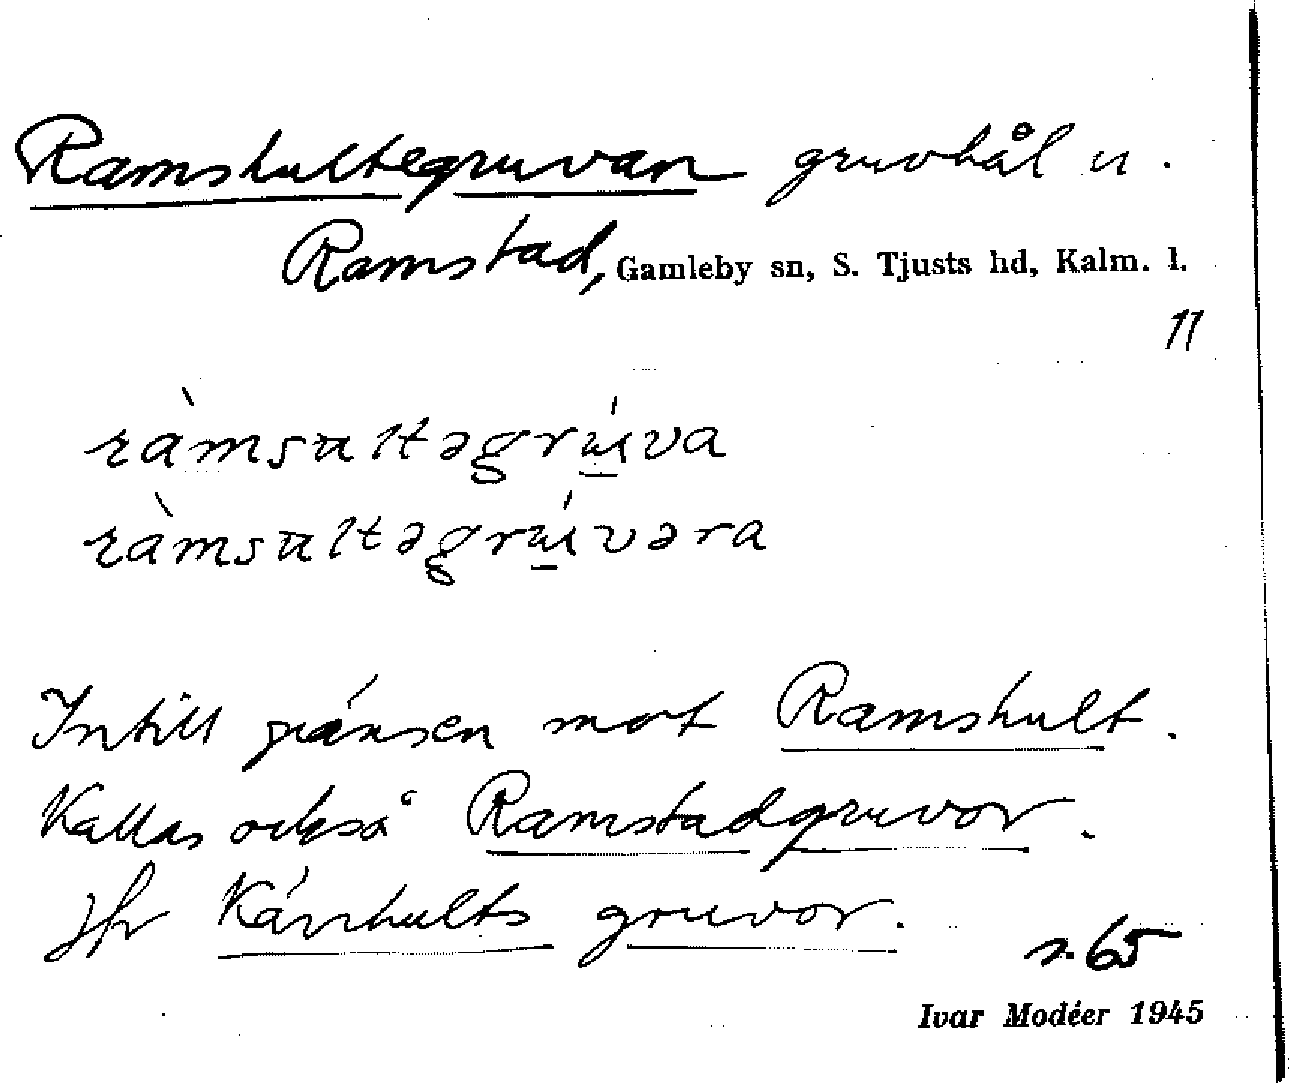 Ramshultegruvan gruvhål u.
Ramstad, Gamleby sn, S. Tjusts hd, Kalm. l.
11
ràmsultəgrúva
ràmsultəgrúvəra
Intill gränsen mot Ramshult.
Kallas också Ramstadgruvor.
Jfr Kärrhults gruvor.
s. 65
Ivar Modéer 1945